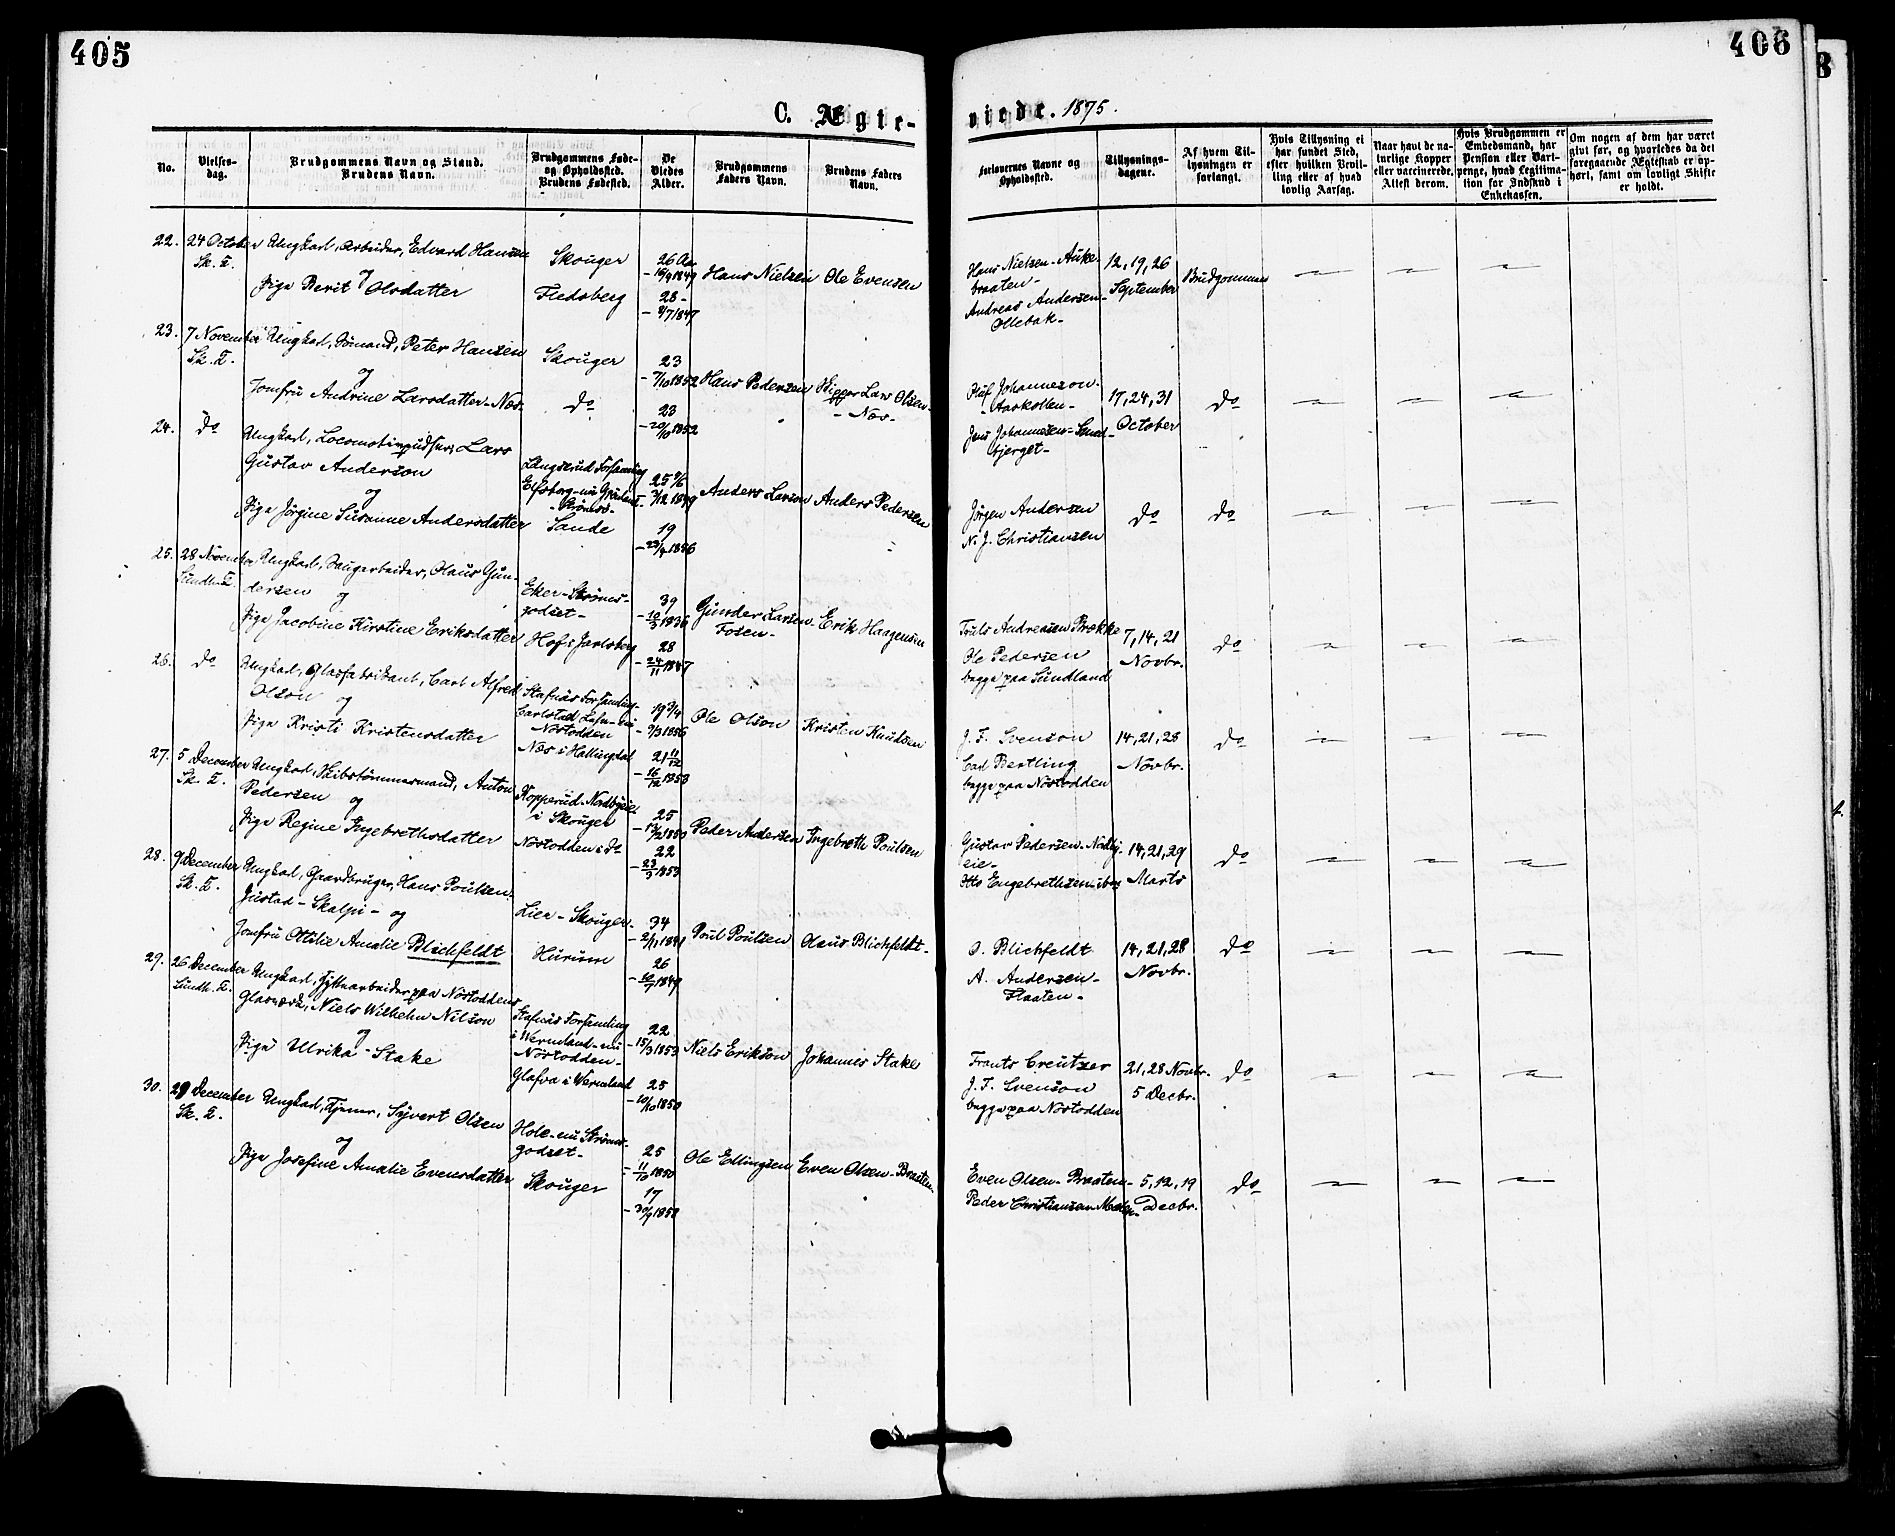 405
406
C. Ægte-
viede. 1875.
No.
Vielses-
dag.
Brudgommens Navn og Stand.
Brudens Navn.
Brudgommens Føde-
og Opholdssted.
Brudens Fødested.
De
Viedes
Alder.
Brudgommens
Faders Navn.
Brudens Faders
Navn.
Forlovernes Navne og
Opholdssted.
Tillysnings-
dagene.
Af hvem Til-
lysningen er
forlangt.
Hvis Tillysning ei
har fundet Sted,
efter hvilken Bevil-
ling eller af hvad
lovlig Aarsag.
Naar havt de na-
turlige Kopper
eller vaccinerede.
Attest derom.
Hvis Brudgommen er
Embedsmand, har
Pension eller Vart-
penge, hvad Legitima-
tion for Indskud i
Enkekassen.
Om nogen af dem har været
givt før, og hvorledes da det
foregaaende Ægteskab er op-
hørt, samt om lovligt Skifte
er holdt.
22. 24 October
Sk. K.
Ungkarl, Arbeider, Edvard Hansen
og
Pige Berit Olsdatter
Skouger
Fledsberg
26 Aar
- 15/9 1849
28 -
- 8/7 1847
Hans Nielsen
Ole Evensen
Hans Nielsen - Auke-
braaten -
Andreas Andersen -
Ollebak -
12, 19, 26
September
Brudgommen
23. 7 November
Sk. K.
Ungkarl, Sømand, Peter Hansen
og
Jomfru Andrine Larsdatter - Næs.
Skouger
do
23
- 7/10 1852
23
- 20/10 1852
Hans Pedersen
Skipper Lars Olsen -
- Næs -
Oluf Johannesen -
- Aaskollen -
Jens Johannesen - Smed-
bjerget -
17, 24, 31
October
do
24. do
Ungkarl, Locomotivpudser, Lars
Gustav Anderson
og
Pige Jørgine Susanne Andersdatter
Långserud Forsamling
Elfsborg - nu Grønland -
- Strømsø -
Sande
- 3/12 1849
19
- 23/4 1856
Anders Larson
Anders Pedersen
Jørgen Andersen
N. J. Christiansen
do
do
25. 28 November
Sundh. K.
Ungkarl, Saugarbeider, Olaus Gun-
dersen og
Pige Jacobine Kirstine Eriksdatter
Eker - Strøms-
godset -
Hof i Jarlsberg
39
- 10/3 1836
28
- 24/11 1847
Gunder Larsen -
Fosen -
Erik Haagensen
Truls Andreasen Brække
Ole Pedersen
begge paa Sundland
7, 14, 21
Novbr.
do
26. do
Ungkarl, Glasfabrikant, Carl Alfred
Olson og
Pige Kristi Kristensdatter
Stafnäs Forsamling -
Carlstad Lehn - nu
Nøstodden
Næs i Hallingdal
19 3/4
- 9/3 1856
21 11/12
- 16/12 1853
Ole Olson
Kristen Knudsen
J. F. Svenson
Carl Bertling
begge paa Nøstodden
14, 21, 28
Novbr.
do
27. 5 December
Sk. K.
Ungkarl, Skibstømmermand, Anton
Pedersen og
Pige Regine Ingebrethsdatter
Kopperud - Nordbyeie
i Skouger
Nøstodden i do
25
22
- 23/3 1853
Peder Andersen
Ingebreth Poulsen
Gustav Pedersen - Nordby-
eie -
Otto Engebrethsen ibid
14, 21, 29
Marts
do
28. 9 December
Sk. K.
Ungkarl, Gaardbruger, Hans Poulsen -
Gustad - Skalpi - og
Jomfru Ottilie Amalie Blichfeldt
Lier - Skouger -
Hurum
34
- 2/11 1841
26
- 10/7 1849
Poul Poulsen
Olaus Blichfeldt -
O. Blichfeldt
A. Andersen -
Flaaten -
14, 21, 28
Novbr.
do
29. 26 December
Sundh. K.
Ungkarl, Hyttearbeider paa Nøstoddens
Glasværk, Niels Wilhelm Nilson
og
Pige Ulrika - Stake
Stafnäs Forsamling
i Wermland - nu
Nøstodden -
Glafva i Wermland
22
- 15/3 1853
25
- 10/10 1850
Niels Erikson
Johannes Stake
Frants Creutzer
J. F. Svenson
begge paa Nøstodden
21, 28 Novbr.
5 Decbr.
do
30. 29 December
Sk. K.
Ungkarl, Tjener, Syvert Olsen
og
Pige Josefine Amalie Evensdatter
Hole - nu Strøms-
godset -
Skouger
25
- 11/10 1850
17
- 30/9 1858
Ole Ellingsen
Even Olsen - Braaten -
Even Olsen - Braaten -
Peder Christiansen
5, 12, 19
Decbr.
do